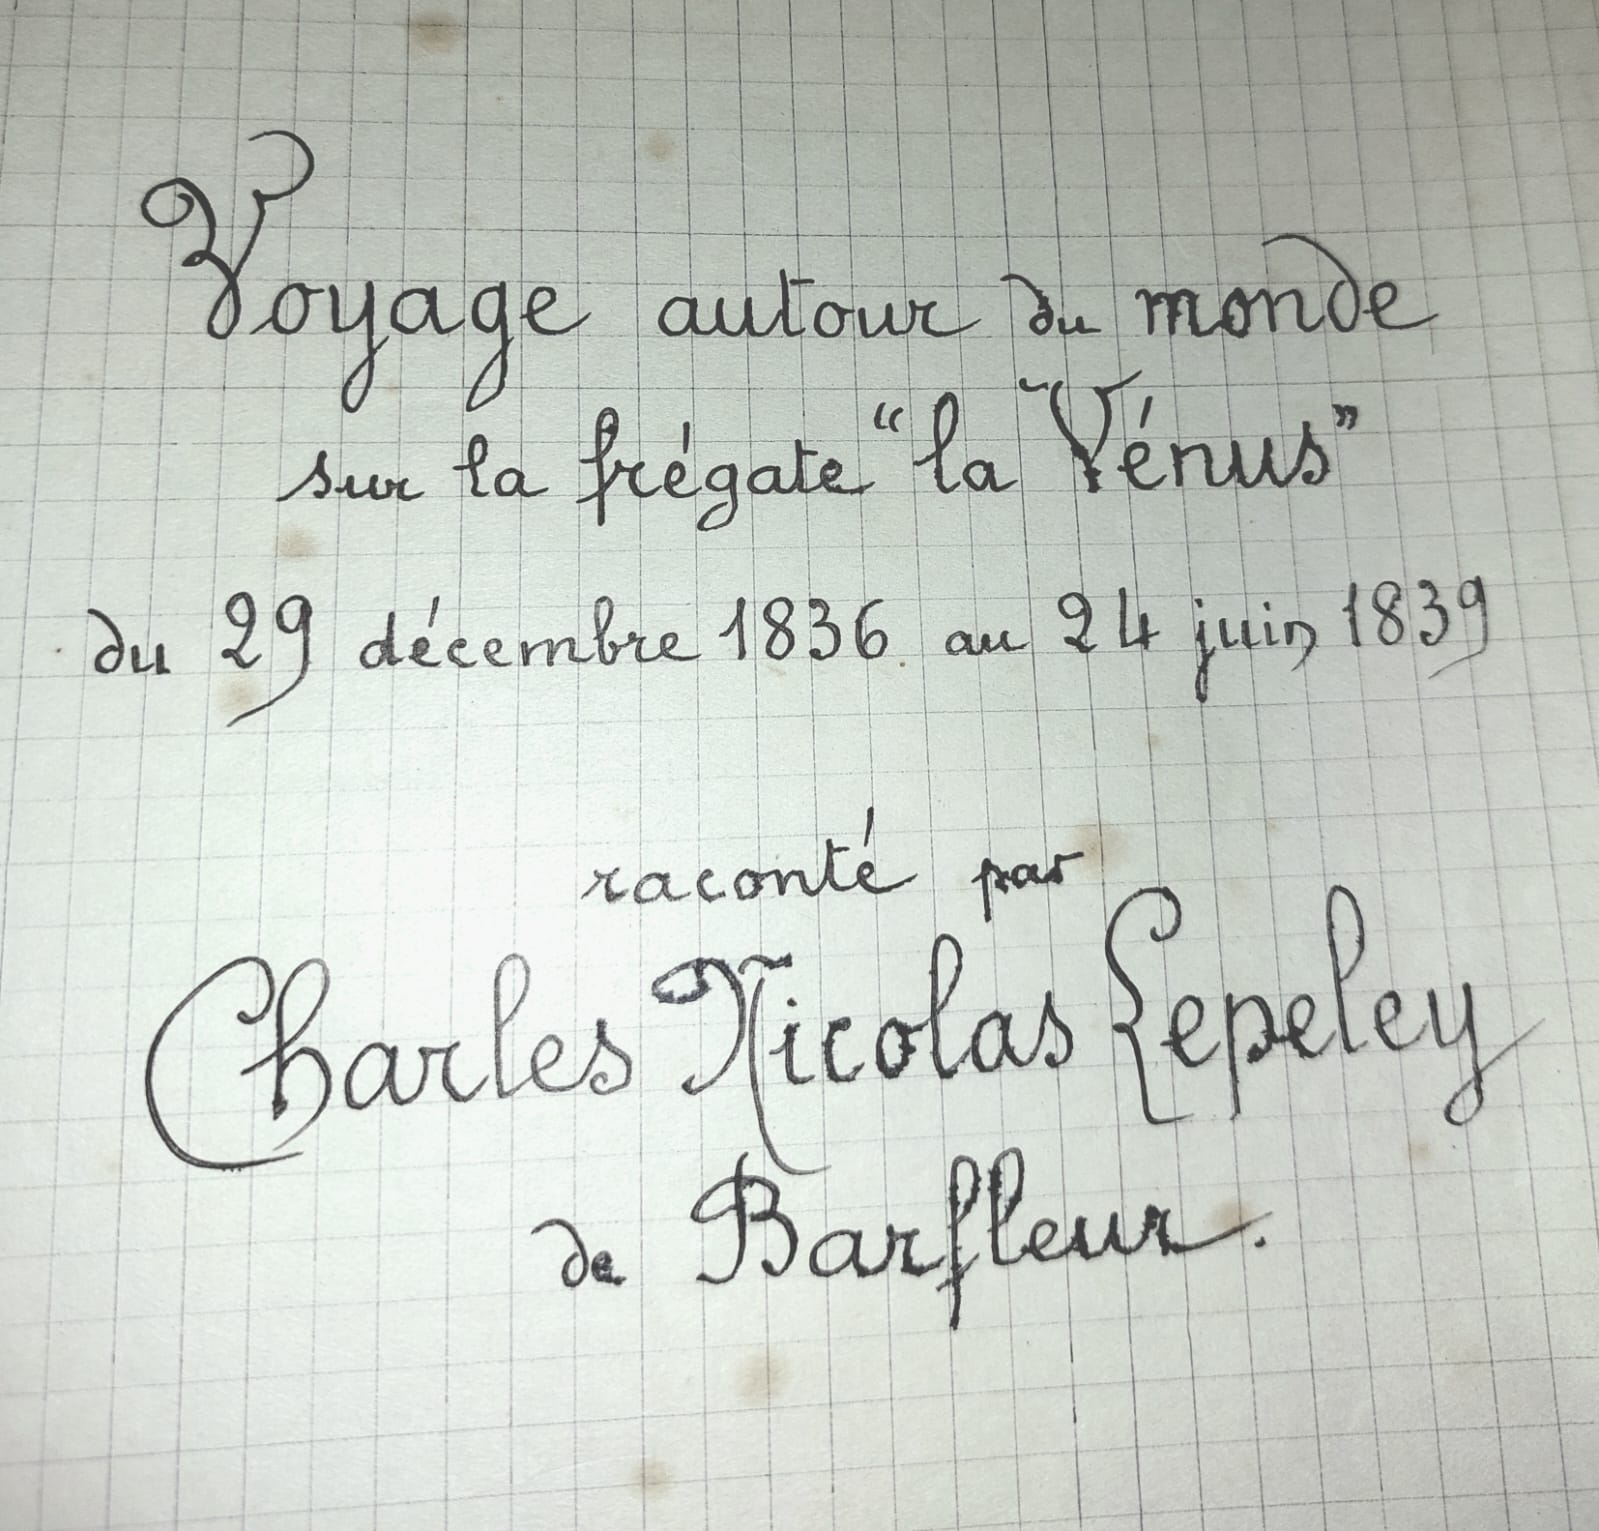 Voyage autour du monde
sur la frégate “la Vénus”
du 29 décembre 1836 au 24 juin 1839
raconté par
Charles Nicolas Lepeley
de Barfleur.